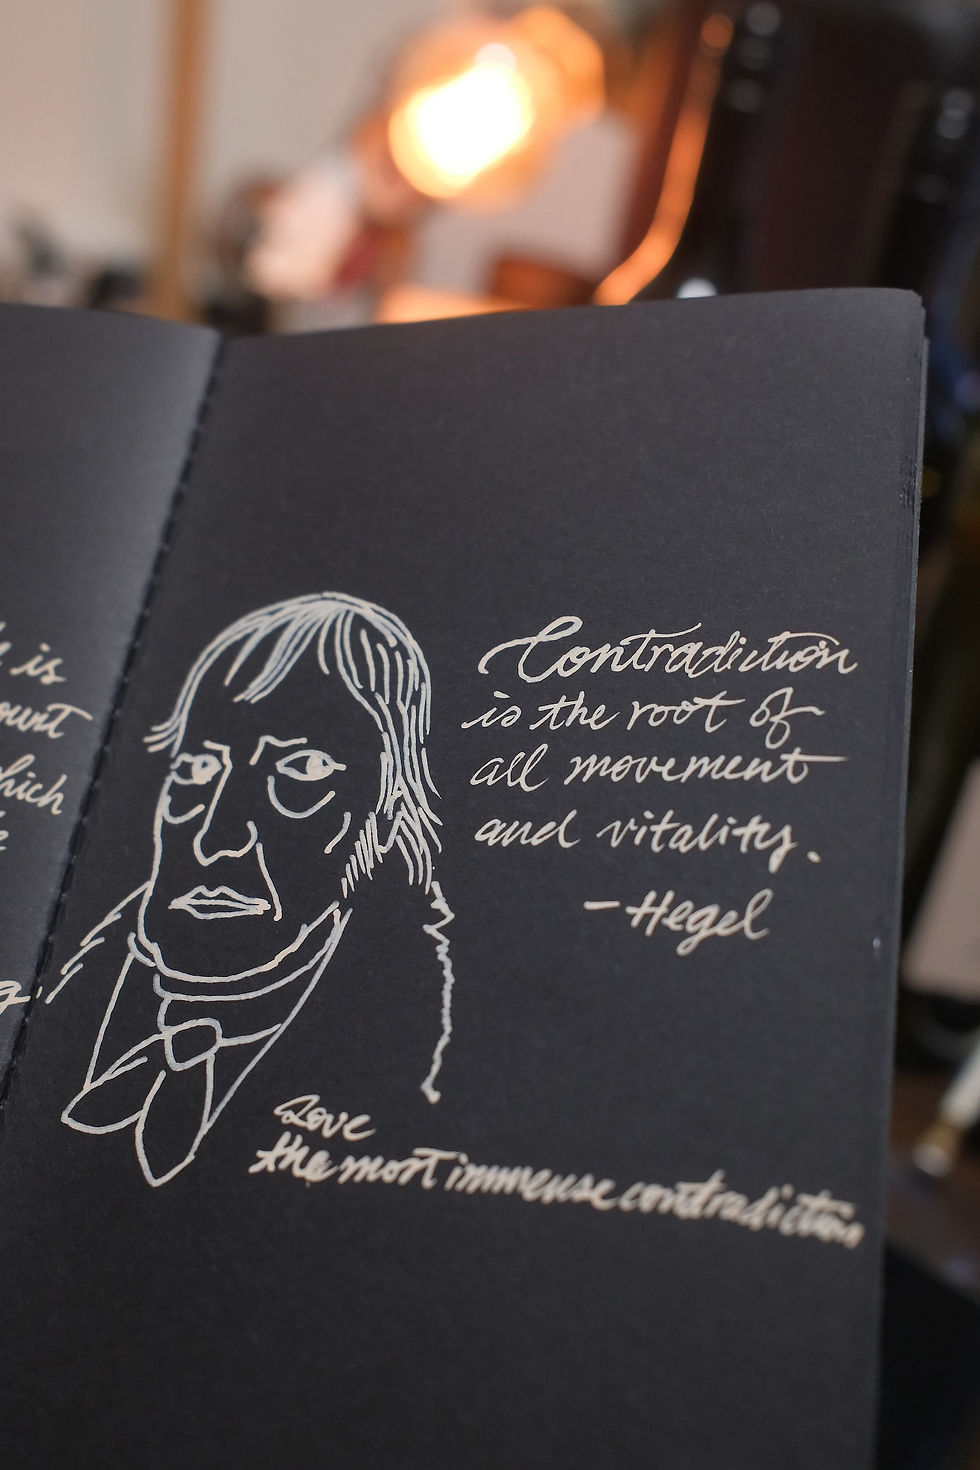 is
which
Contradiction
is the root of
all movement
and vitality.
- Hegel
Love
the most immense contradiction